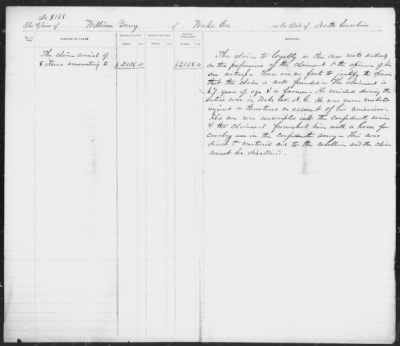 No. 8168
The Claim of William Young, of Wake Co. in the State of North Carolina
NATURE OF CLAIM.
REMARKS.
The claim consists of
8 items amounting to $2038 $2038
The claim to loyalty in this case rests entirely
on the professions of the claimant & the opinion of his
own witnesses. There are no facts to justify the opinion
that the claim is well founded. The claimant is
67 years of age & a farmer. He resided during the
entire war in Wake Co. N.C. He was never molested
injured or threatened on account of his unionism.
His son was conscripted into the confederate service
& the claimant furnished him with a horse for
cavalry use in the confederate army. This was
direct & material aid to the rebellion and the claim
must be disallowed.